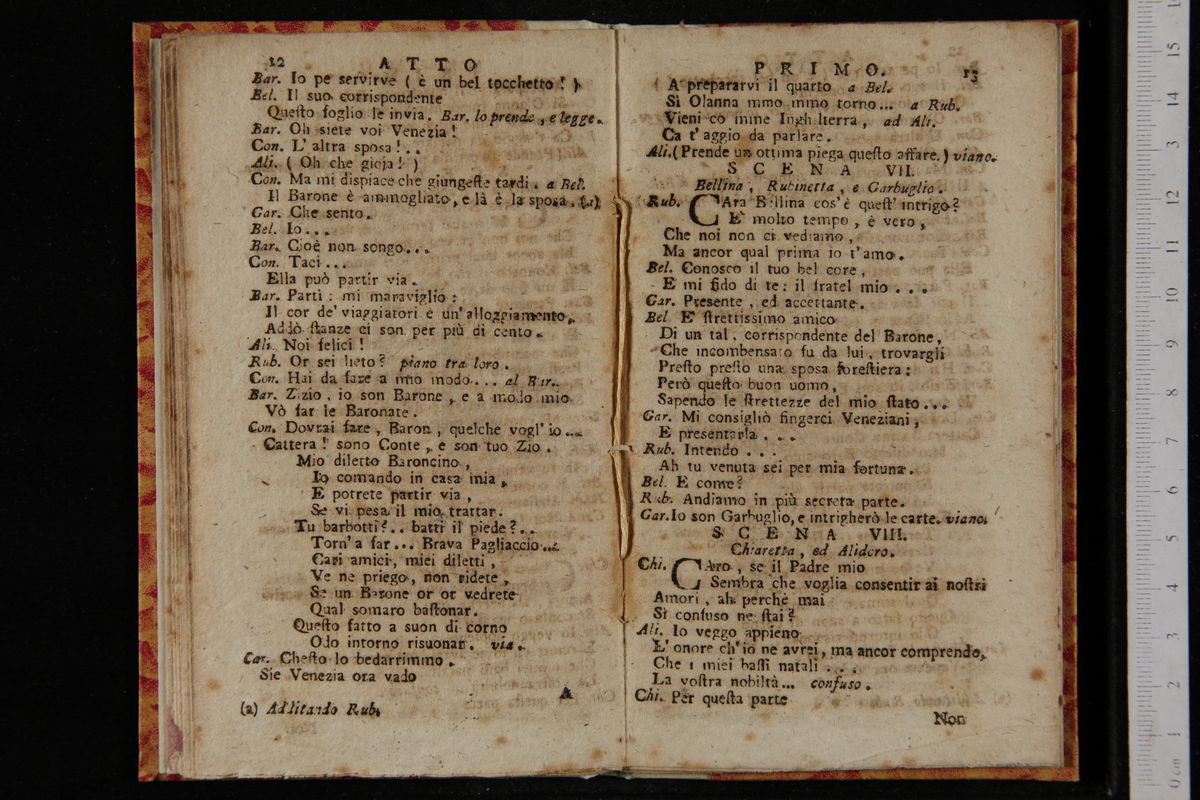 12 ATTO
Bar. Io pe servirve ( è un bel tocchetto ! )
Bel. Il suo corrispondente
Queſto foglio le invia. Bar. lo prende, e legge.
Bar. Oh siete voi Venezia !
Con. L' altra sposa ! . .
Ali. ( Oh che gioja ! )
Con. Ma mi dispiace che giungeſte tardi. a Bel.
Il Barone è ammogliato, e là è la sposa. (a)
Gar. Che sento.
Bel. Io . . .
Bar. Cioè non songo . . .
Con. Taci . . .
Ella può partir via.
Bar. Partì : mi maraviglio :
Il cor de' viaggiatori è un' alloggiamento,
Addò ſtanze ci son per più di cento.
Ali. Noi felici !
Rub. Or sei lieto ? piano tra loro.
Con. Hai da fare a mio modo . . . al Bar.
Bar. Zizio, io son Barone, e a modo mio
Vò far le Baronate.
Con. Dovrai fare, Baron, quelche vogl' io . . .
Cattera ! sono Conte, e son tuo Zio.
Mio diletto Baroncino,
Io comando in casa mia,
E potrete partir via,
Se vi pesa il mio trattar.
Tu barbotti ? . . batti il piede ? . .
Torn' a far . . . Brava Pagliaccio . . .
Cari amici, miei diletti,
Ve ne priego, non ridete,
Se un Barone or or vedrete
Qual somaro baſtonar.
Queſto fatto a suon di corno
Odo intorno risuonar. via.
Car. Cheſto lo bedarrimmo.
Sie Venezia ora vado
A
(a) Additando Rub.
PRIMO. 13
A prepararvi il quarto a Bel.
Sì Olanna mmo mmo torno . . . a Rub.
Vieni co mme Inghilterra, ad Ali.
Ca t' aggio da parlare.
Ali. ( Prende un ottima piega queſto affare. ) viano.
SCENA VII.
Bellina, Rubinetta, e Garbuglio.
Rub. CAra Bellina cos' è queſt' intrigo ?
E' molto tempo, è vero,
Che noi non ci vediamo,
Ma ancor qual prima io t' amo.
Bel. Conosco il tuo bel core,
E mi fido di te : il fratel mio . . .
Gar. Presente, ed accettante.
Bel. E' ſtrettissimo amico
Di un tal, corrispondente del Barone,
Che incombensato fu da lui, trovargli
Preſto preſto una sposa foreſtiera :
Però queſto buon uomo,
Sapendo le ſtrettezze del mio ſtato . . .
Gar. Mi consigliò fingerci Veneziani,
E presentarla . . .
Rub. Intendo . . .
Ah tu venuta sei per mia fortuna.
Bel. E come ?
Rub. Andiamo in più secreta parte.
Gar. Io son Garbuglio, e intrigherò le carte. viano.
SCENA VIII.
Chiaretta, ed Alidoro.
Chi. CAro, se il Padre mio
Sembra che voglia consentir ai noſtri
Amori, ah perchè mai
Sì confuso ne ſtai ?
Ali. Io veggo appieno
L' onore ch' io ne avrei, ma ancor comprendo,
Che i miei baſſi natali . . .
La voſtra nobiltà . . . confuso.
Chi. Per queſta parte
Non
15
14
13
12
11
10
9
8
7
6
5
4
3
2
1
0 cm